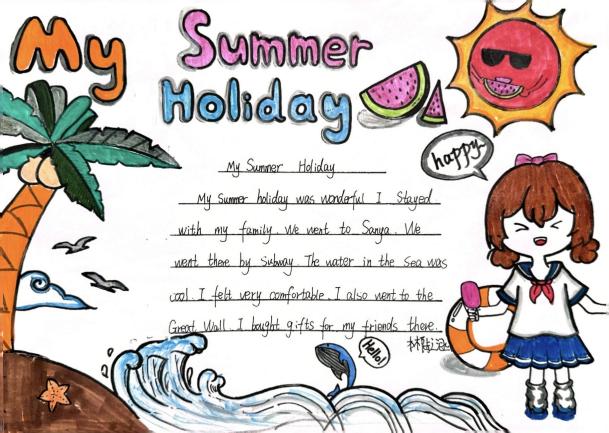 My
Summer
Holiday
happy~
My Summer Holiday
My Summer holiday was wonderful I Stayed
with my family. We went to Sanya. We
went there by Subway. The water in the sea was
cool. I felt very comfortable. I also went to the
Great Wall. I bought gifts for my friends there.
Hello!